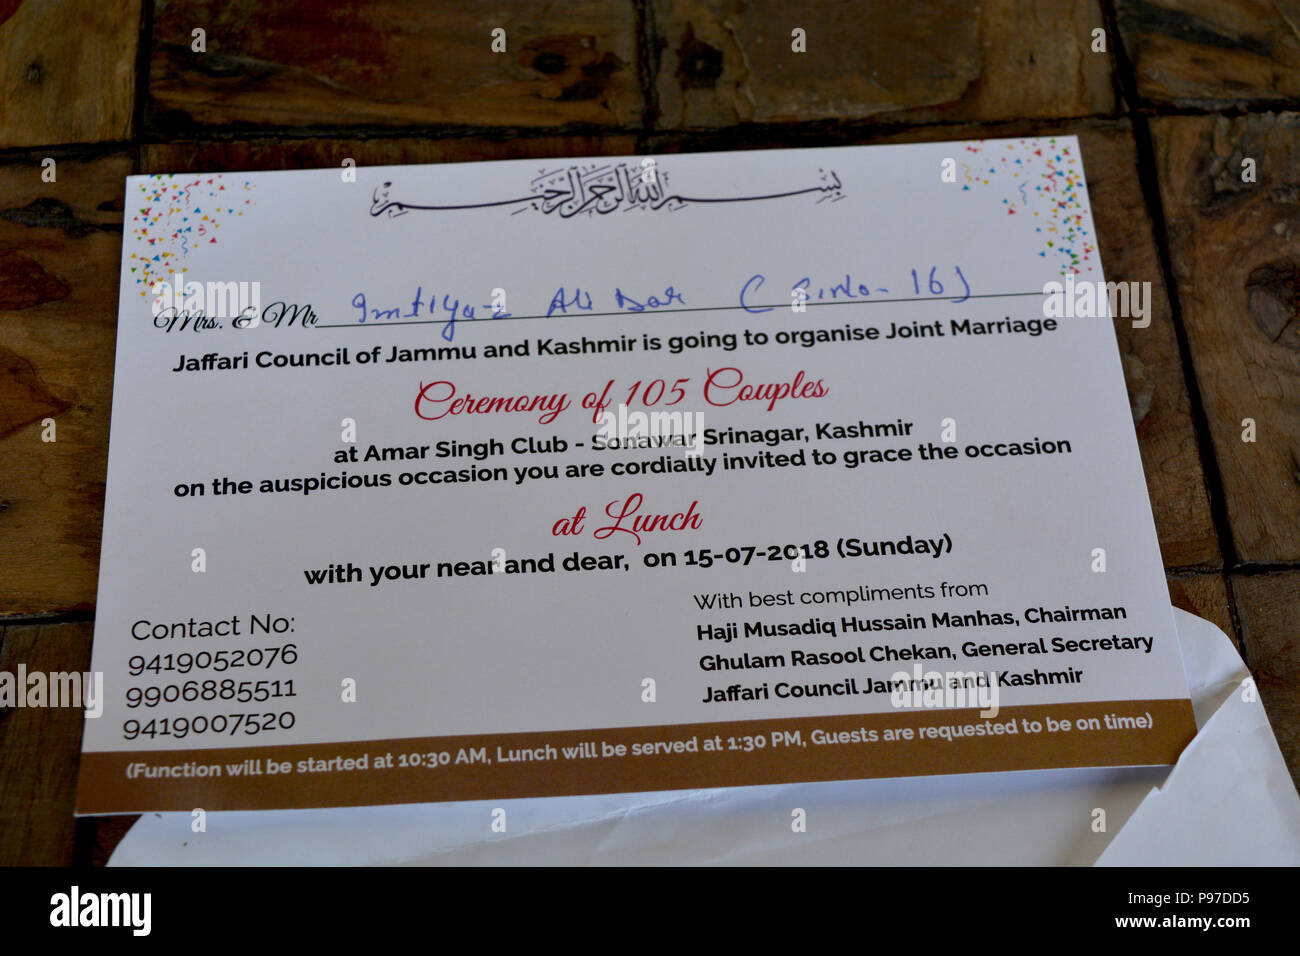 بسم الله الرحمن الرحيم
Mrs. & Mr Imtiyaz Ali Dar
Jaffari Council of Jammu and Kashmir is going to organise Joint Marriage
Ceremony of 105 Couples
at Amar Singh Club - Sonawar Srinagar, Kashmir
on the auspicious occasion you are cordially invited to grace the occasion
at Lunch
with your near and dear, on 15-07-2018 (Sunday)
With best compliments from
Haji Musadiq Hussain Manhas, Chairman
Ghulam Rasool Chekan, General Secretary
Jaffari Council Jammu and Kashmir
Contact No:
9419052076
9906885511
9419007520
(Function will be started at 10:30 AM, Lunch will be served at 1:30 PM, Guests are requested to be on time)
alamy
alamy
Image ID: P97DD5
www.alamy.com